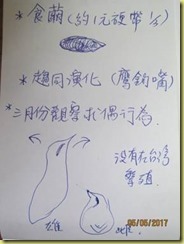 * 食繭(約1元旋幣½)
* 趨同演化 (鷹鉤嘴)
* 三月份觀察求偶行為
没有在台灣
繁殖.
雄
雌
05/05/2017